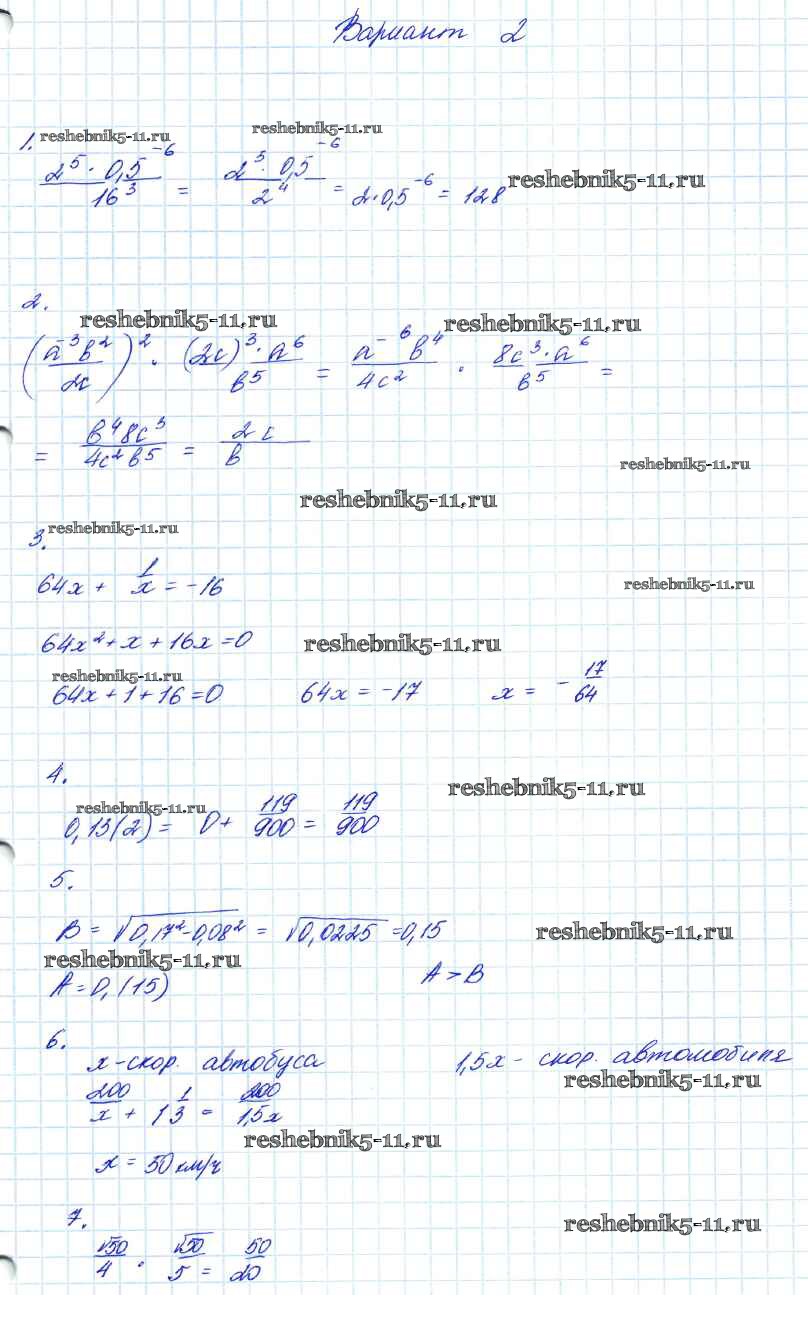 Вариант 2
reshebnik5-11.ru reshebnik5-11.ru
1. (2^5 · 0,5^-6)/16^3 = (2^5 · 0,5^-6)/2^4 = 2·0,5^-6 = 128 reshebnik5-11.ru
2.
reshebnik5-11.ru reshebnik5-11.ru
((a^-3 b^2)/2c)^2 · ((2c)^3 · a^6)/b^5 = (a^-6 b^4)/4c^2 · (8c^3 · a^6)/b^5 =
= (b^4 8c^3)/(4c^2 b^5) = 2c/b
reshebnik5-11.ru
reshebnik5-11.ru
3. reshebnik5-11.ru
64x + 1/x = -16 reshebnik5-11.ru
64x^2 + x + 16x = 0 reshebnik5-11.ru
reshebnik5-11.ru
64x + 1 + 16 = 0 64x = -17 x = -17/64
4. reshebnik5-11.ru
reshebnik5-11.ru
0,13(2) = 0 + 119/900 = 119/900
5.
B = √(0,17^2 - 0,08^2) = √0,0225 = 0,15 reshebnik5-11.ru
reshebnik5-11.ru
A = 0,(15) A > B
6.
x - скор. автобуса 1,5x - скор. автомобиля
reshebnik5-11.ru
200/x + 1 1/3 = 200/1,5x
reshebnik5-11.ru
x = 50 км/ч
7. reshebnik5-11.ru
√50/4 · √50/5 = 50/20